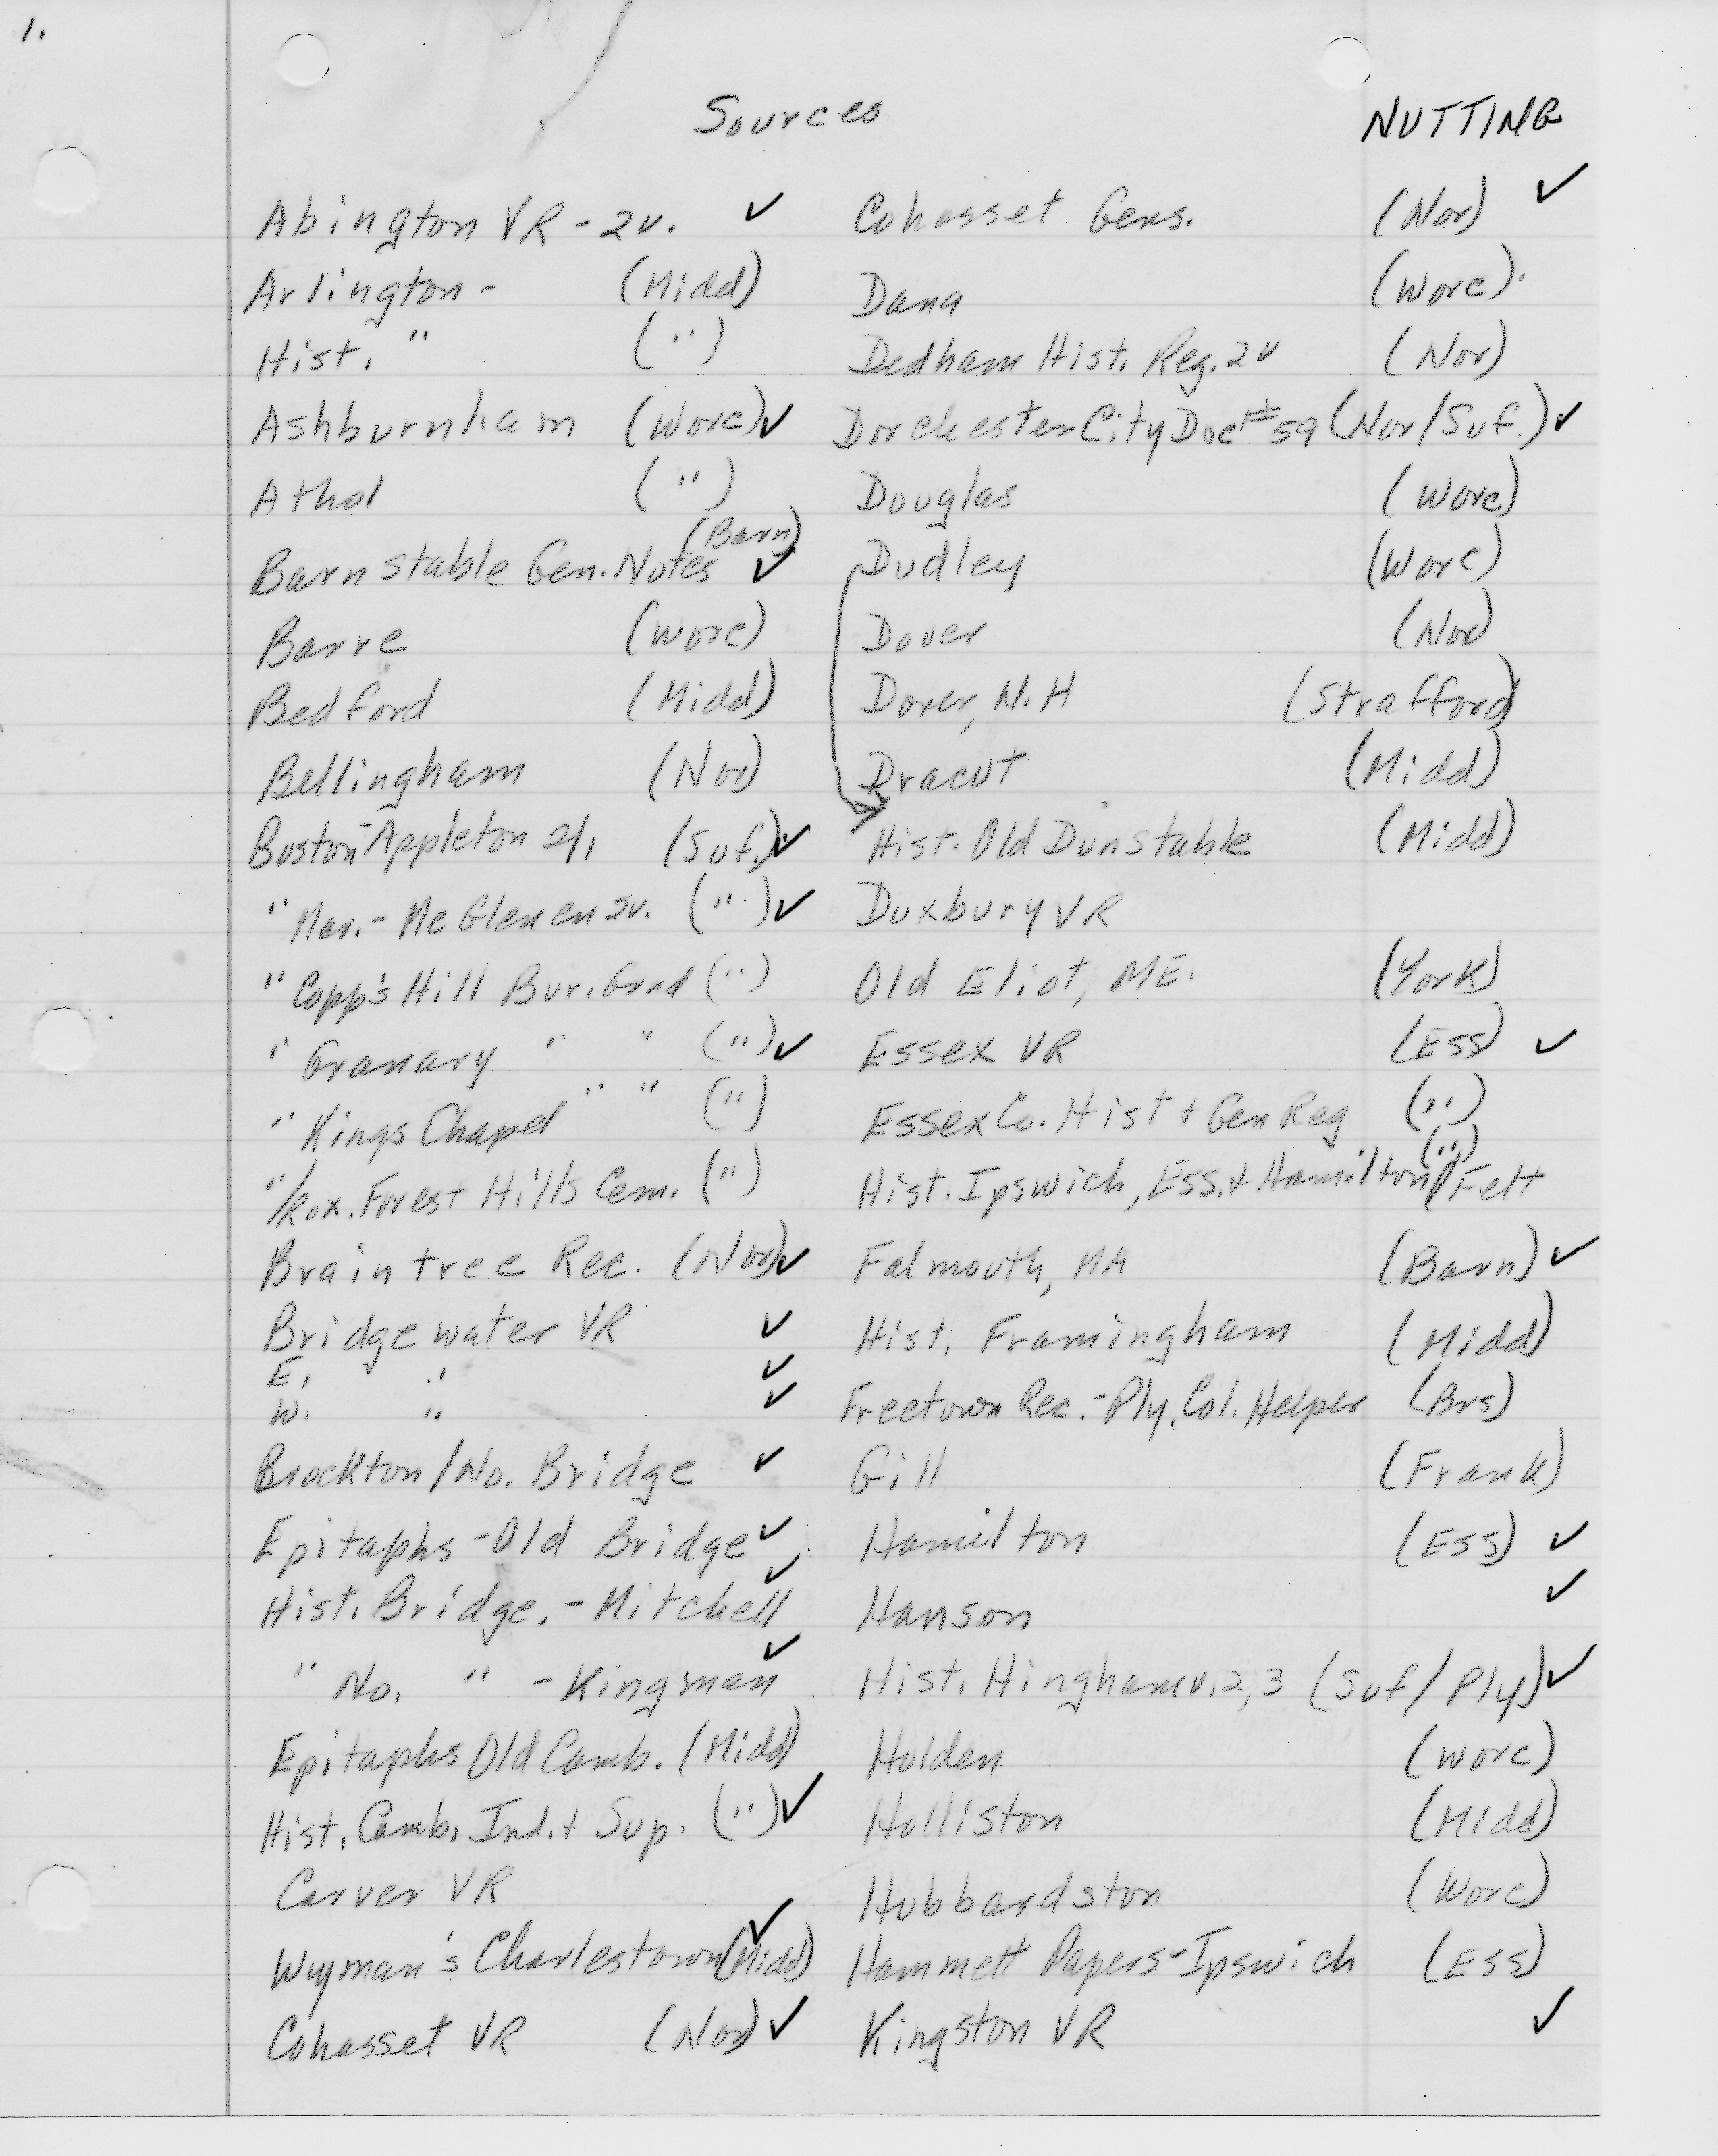 1.
Sources
NUTTING
Abington VR - 2v. ✓
Arlington - (Midd)
Hist. " (")
Ashburnham (Worc) ✓
Athol (")
(Barn)
Barnstable Gen. Notes ✓
Barre (Worc)
Bedford (Midd)
Bellingham (Nor)
Boston - Appleton (Suf.) ✓
" Mar. - McGlenen 2v. (") ✓
" Copp's Hill Bur. Grnd (")
" Granary " " (") ✓
" Kings Chapel " " (")
" /Rox. Forest Hills Cem. (")
Braintree Rec. (Nor) ✓
Bridgewater VR ✓
E. " ✓
W. " ✓
Brockton/No. Bridge ✓
Epitaphs - Old Bridge ✓
Hist. Bridge. - Mitchell ✓
" No. " - Kingman ✓
Epitaphs Old Camb. (Midd)
Hist. Camb. Ind. + Sup. (") ✓
Carver VR
Wyman's Charlestown (Midd) ✓
Cohasset VR (Nor) ✓
Cohasset Gens. (Nor) ✓
Dana (Worc).
Dedham Hist. Reg. 2v (Nor)
Dorchester City Doc # 59 (Nor/Suf.) ✓
Douglas (Worc)
Dudley (Worc)
Dover (Nor)
Dover, N.H (Strafford)
Dracut (Midd)
Hist. Old Dunstable (Midd)
Duxbury VR
Old Eliot, ME. (York)
Essex VR (Ess) ✓
Essex Co. Hist + Gen Reg (")
Hist. Ipswich, Ess. + Hamilton/Felt (")
Falmouth, MA (Barn) ✓
Hist. Framingham (Midd)
Freetown Rec. - Ply. Col. Helper (Brs)
Gill (Frank)
Hamilton (Ess) ✓
Hanson ✓
Hist. Hingham v. 2, 3 (Suf/Ply) ✓
Holden (Worc)
Holliston (Midd)
Hubbardston (Worc)
Hammett Papers - Ipswich (Ess)
Kingston VR ✓